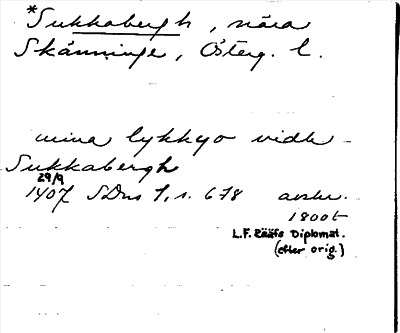 *Sukkabergh, nära
Skänninge, Österg. l.
mina lykkyo vidh
Sukkabergh
29/9
1407 SDns 1, s. 678 avskr.
1800t
L.F. Rääfs Diplomat.
(efter orig.)